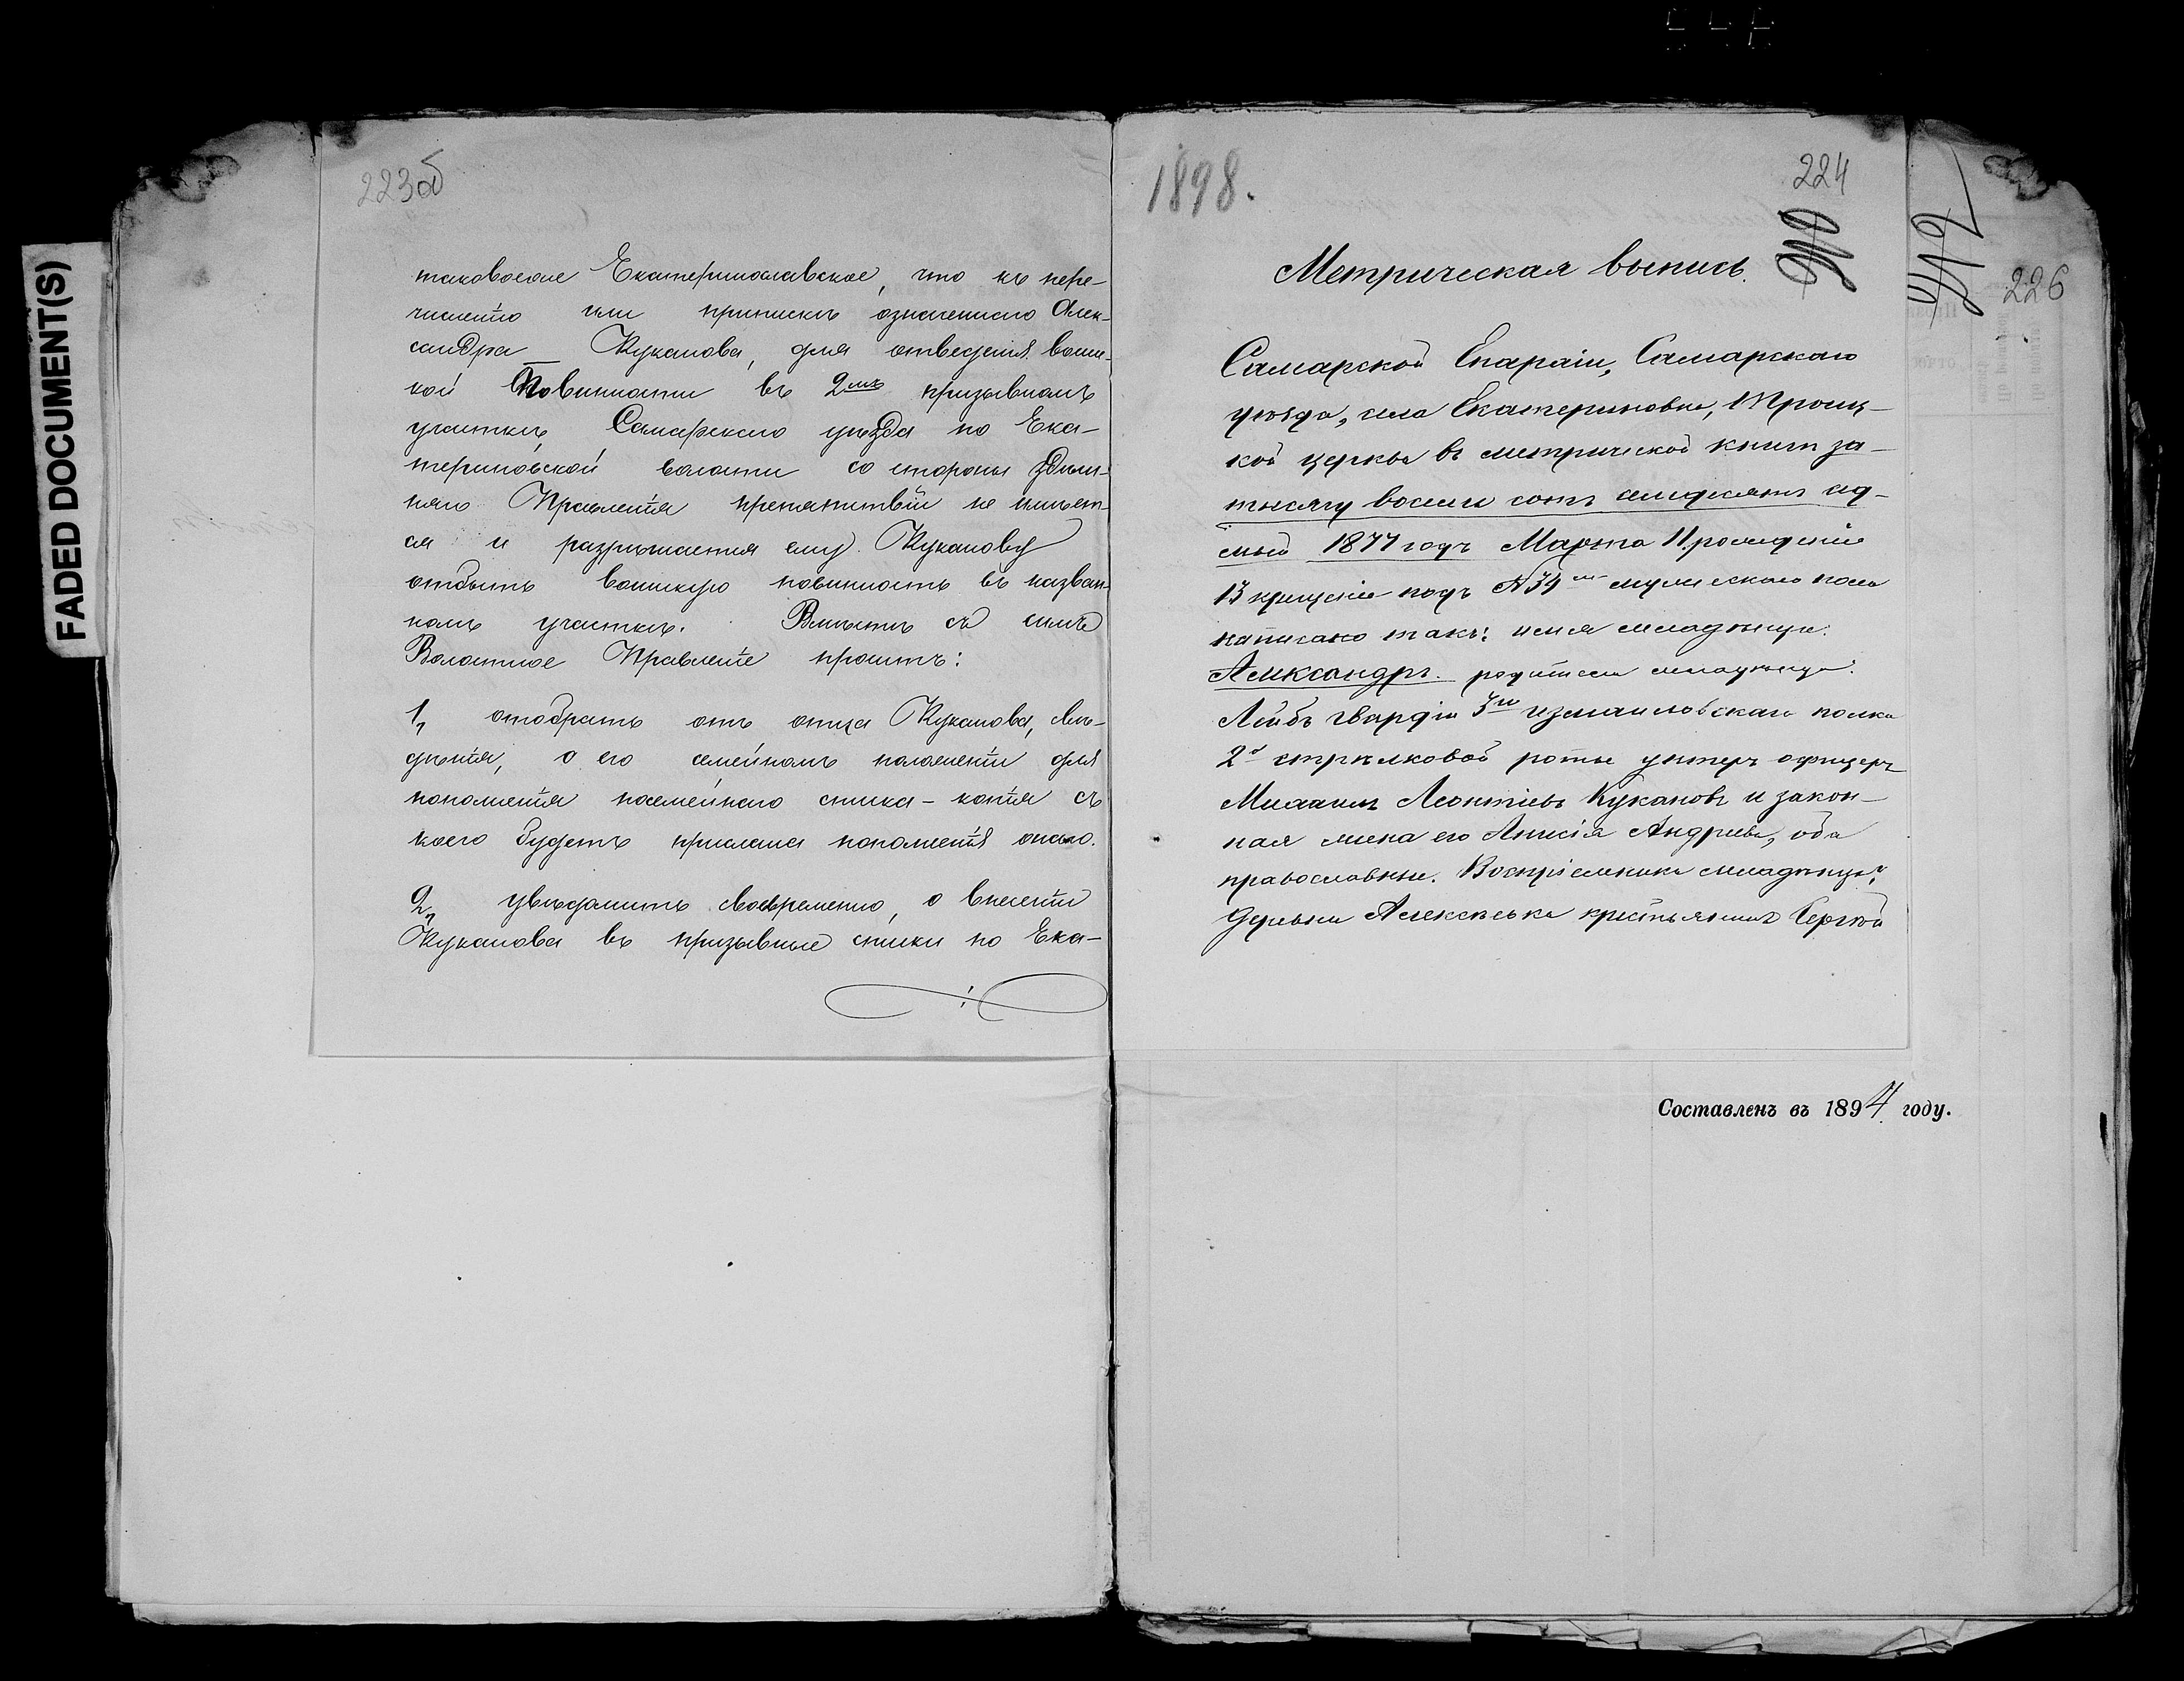 FADED DOCUMENT(S)
223об
таковское Екатеринославское, что къ пере-
численію или припискѣ означеннаго Алек-
сандра Куканова, для отведенія воин-
кой Повинности въ 2мъ призывномъ
участкѣ Самарскаго уѣзда по Ека-
териновской волости со стороны здѣш-
няго Правленія препятствій не имѣет-
ся и разрѣшается ему Куканову
отбыть воинскую повинность въ назван-
номъ участкѣ. Вмѣстѣ съ симъ
Волостное Правленіе проситъ:
1, отобрать отъ отца Куканова, свѣ-
дѣнія, о его семейномъ положеніи для
пополненія посемейнаго списка - копія съ
коего будетъ прислана пополненія онаго.
2, увѣдомить своевременно, о внесеніи
Куканова въ призывные списки по Ека-
1898.
224
226
Метрическая выпись.
Самарской Епархіи, Самарскаго
уѣзда, села Екатериновки, Троиц-
кой церкви въ метрической книгѣ за
тысячу восемь сотъ семьдесятъ сед-
мый 1877 годъ Марта 11 рожденіе
13 крещеніе подъ №39 мужескаго пола
написано такъ: имя младенца:
Александръ. родители младенца:
Лейбъ гвардіи 3го измаиловскаго полка
2й стрѣлковой роты унтеръ офицеръ
Михаилъ Леонтіевъ Кукановъ и закон-
ная жена его Анисія Андреева, оба
православные. Воспріемники младенца:
деревни Алексѣевки крестьянинъ Сергѣй
Составленъ въ 1897 году.